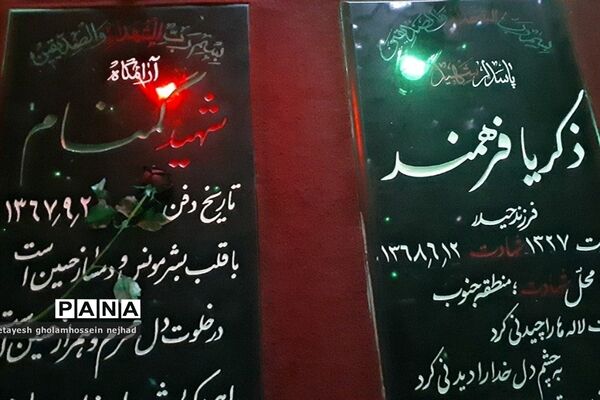 بسم رب الشهداء والصدیقین
پاسدار شهید
ذکریا فرهمند
فرزند حیدر
ت ۱۳۲۷ شهادت ۱۳۶۸٫۶٫۱۲
محل شهادت ؛ منطقه جنوب
ت لاله ها را چیدنی کرد
به چشم دل خدا را دیدنی کرد
بسم رب الشهداء والصدیقین
آرامگاه
شهید گمنام
تاریخ دفن ۱۳۶۷٫۹٫۲
با قلب بشر مونس و دمساز حسین است
در خلوت دل محرم و همراز حسین است
PANA
etayesh gholamhossein nejhad